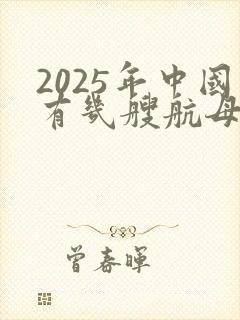 2025年中國
有幾艘航母
曾春暉